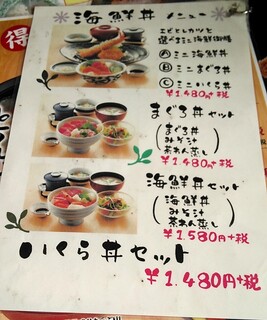 海鮮丼メニュー
得
エビヒレカツと
選べるミニ海鮮御膳
Ⓐミニ海鮮丼
Ⓑミニまぐろ丼
Ⓒミニいくら丼
¥1,480+税
まぐろ丼セット
(まぐろ丼
みそ汁
茶わん蒸し)
¥1,480+税
海鮮丼セット
(海鮮丼
みそ汁
茶わん蒸し)
¥1,580円+税
いくら丼セット
¥1,480円+税